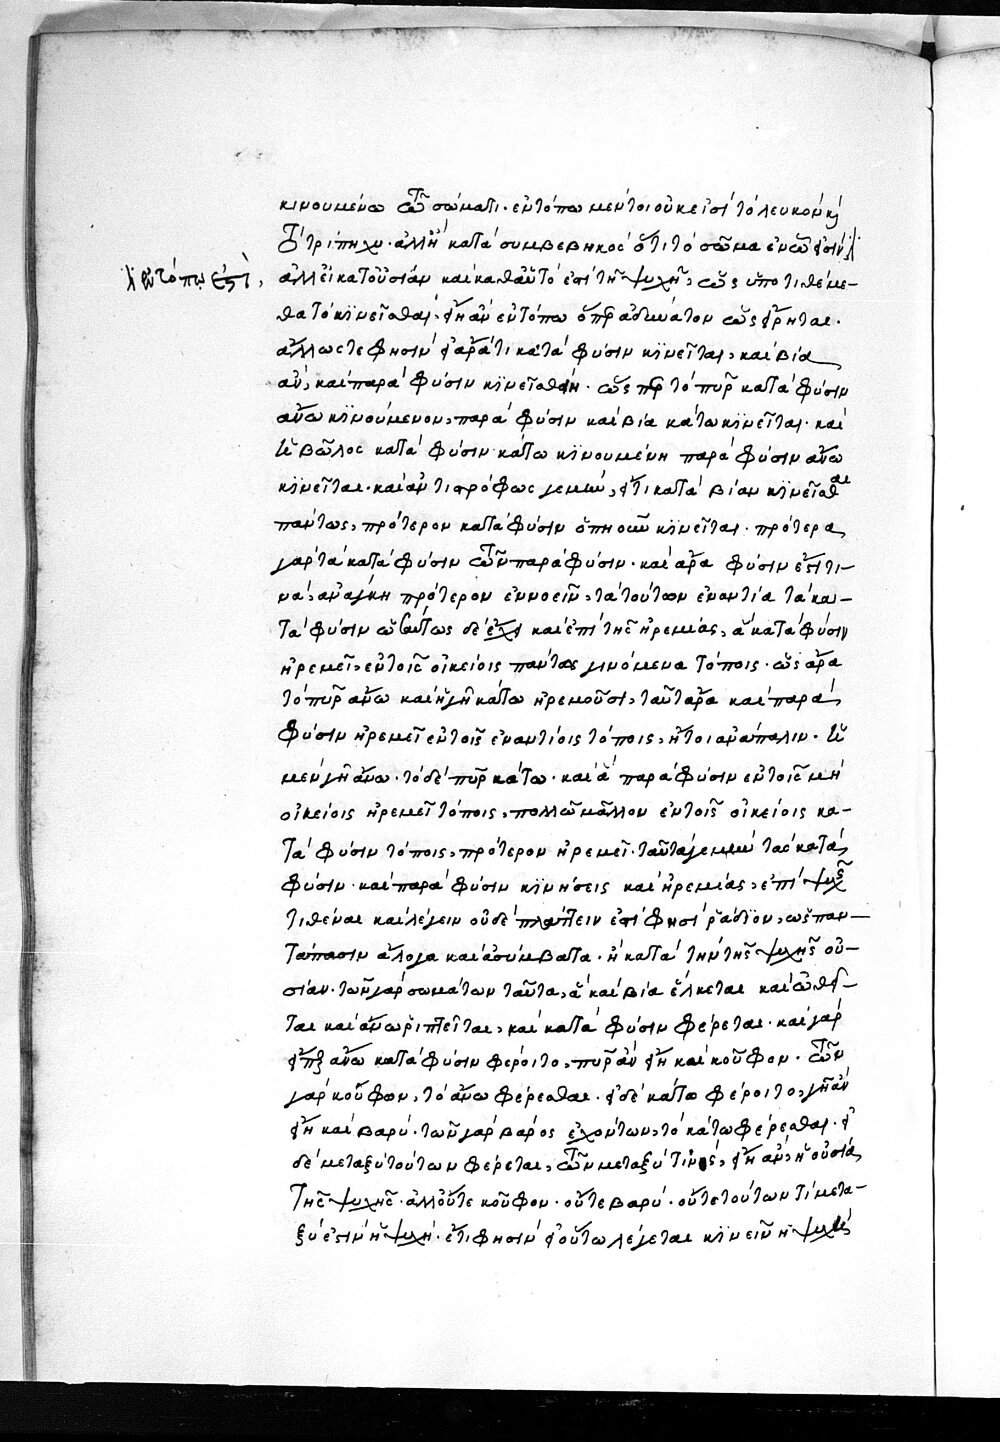 κινουμένω τῶ σώματι· ἐν τόπω μέντοι οὐκ ἐστὶ τὸ λευκὸν καὶ
τὸ τρίπηχυ· ἀλλ' ἢ κατὰ συμβεβηκὸς ὅτι τὸ σῶμα ἐν ὧ ἐστὶν
ἐν τόπω ἐστὶ,
ἀλλ' εἰ κατ' οὐσίαν καὶ καθ' αὑτό ἐστι τῇ ψυχῇ, ὡς ὑποτιθέμε-
θα τὸ κινεῖσθαι, εἴη ἂν ἐν τόπω ὅπερ ἀδύνατον ὡς εἴρηται·
ἄλλως τέ φησιν εἰ ἄρά τι κατὰ φύσιν κινεῖται, καὶ βία
ἂν, καὶ παρὰ φύσιν κινεῖσθαι· ὥσπερ τὸ πῦρ κατὰ φύσιν
ἄνω κινούμενον, παρὰ φύσιν καὶ βία κάτω κινεῖται· καὶ
ἡ βῶλος κατὰ φύσιν κάτω κινουμένη παρὰ φύσιν ἄνω
κινεῖται· καὶ ἀντιστρόφως γε μὴν, εἴ τι κατὰ βίαν κινεῖσθαι
πάντως, πρότερον κατὰ φύσιν ὅπη οὖν κινεῖται· πρότερα
γὰρ τὰ κατὰ φύσιν τῶν παρὰ φύσιν· καὶ ἄρα φύσιν ἐστί τι-
να, ἀνάγκη πρότερον ἐννοεῖν, τὰ τούτων ἐναντία τὰ κα-
τὰ φύσιν ὡσαύτως δὲ ἔχει καὶ ἐπὶ τῆς ἠρεμίας, ἃ κατὰ φύσιν
ἠρεμεῖ, ἐν τοῖς οἰκείοις πάντως γινόμενα τόποις· ὡς ἄρα
τὸ πῦρ ἄνω καὶ ἡ γῆ κάτω ἠρεμοῦσι, ταῦτ' ἄρα καὶ παρὰ
φύσιν ἠρεμεῖ ἐν τοῖς ἐναντίοις τόποις, ἤτοι ἀνάπαλιν· ἡ
μὲν γῆ ἄνω· τὸ δὲ πῦρ κάτω· καὶ ἃ παρὰ φύσιν ἐν τοῖς μὴ
οἰκείοις ἠρεμεῖ τόποις, πολλῶ μᾶλλον ἐν τοῖς οἰκείοις κα-
τὰ φύσιν τόποις, πρότερον ἠρεμεῖ· ταῦτα γε μὴν τὰς κατὰ
φύσιν· καὶ παρὰ φύσιν κινήσεις καὶ ἠρεμίας, ἐπὶ ψυχῆς
τιθέναι καὶ λέγειν οὐδὲ πλάττειν ἐστί φησι ῥάδιον, ὡς παν-
τάπασιν ἄλογα καὶ ἀσύμβατα· ἢ κατὰ τὴν τῆς ψυχῆς οὐ-
σίαν· τῶν γὰρ σωμάτων ταῦτα, ἃ καὶ βία ἕλκεται καὶ ὠθεῖ-
ται καὶ ἄνω ῥιπτεῖται, καὶ κατὰ φύσιν φέρεται· καὶ γὰρ
εἴπερ ἄνω κατὰ φύσιν φέροιτο, πῦρ ἂν εἴη καὶ κοῦφον· τῶν
γὰρ κούφων, τὸ ἄνω φέρεσθαι· εἰ δὲ κάτω φέροιτο, γῆ ἂν
εἴη καὶ βαρύ· τῶν γὰρ βάρος ἐχόντων, τὸ κάτω φέρεσθαι· εἰ
δὲ μεταξὺ τούτων φέρεται, τῶν μεταξύ τινος, εἴη ἂν, ἡ οὐσία
τῆς ψυχῆς· ἀλλ' οὔτε κοῦφον· οὔτε βαρύ· οὔτε τούτων τὶ μετα-
ξύ ἐστιν ἡ ψυχή· ἔτι φησὶν εἰ οὕτω λέγεται κινεῖν ἡ ψυχὴ